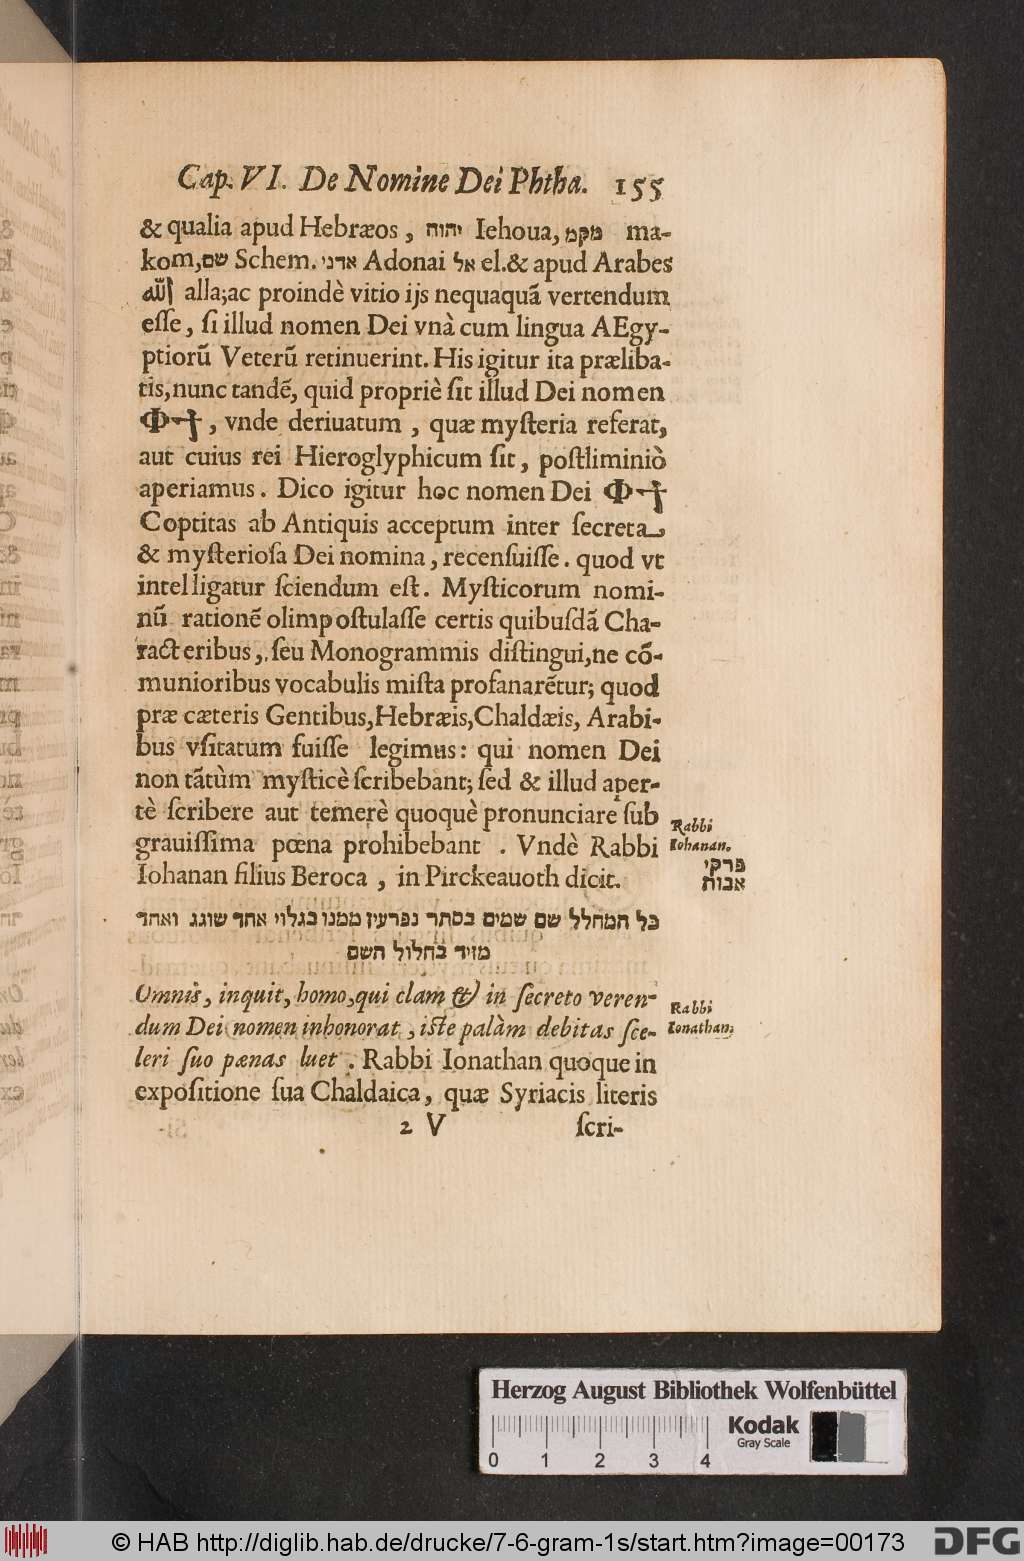 Cap. VI. De Nomine Dei Phtha. 155
& qualia apud Hebræos, יהוה Iehoua, מקמ ma-
kom, שם Schem. אדני Adonai אל el. & apud Arabes
الله alla; ac proindè vitio ijs nequaquā vertendum
eſſe, ſi illud nomen Dei vnà cum lingua AEgy-
ptiorū Veterū retinuerint. His igitur ita præliba-
tis, nunc tandē, quid propriè ſit illud Dei nomen
, vnde deriuatum, quæ myſteria referat,
aut cuius rei Hieroglyphicum ſit, poſtliminiò
aperiamus. Dico igitur hoc nomen Dei
Coptitas ab Antiquis acceptum inter ſecreta
& myſterioſa Dei nomina, recenſuiſſe. quod vt
intelligatur ſciendum eſt. Myſticorum nomi-
nū rationē olim poſtulaſſe certis quibuſdā Cha-
racteribus, ſeu Monogrammis diſtingui, ne cō-
munioribus vocabulis miſta profanarētur; quod
præ cæteris Gentibus, Hebræis, Chaldæis, Arabi-
bus vſitatum fuiſſe legimus: qui nomen Dei
non tātùm myſticè ſcribebant; ſed & illud aper-
tè ſcribere aut temerè quoquè pronunciare ſub
grauiſſima pœna prohibebant. Vndè Rabbi
Iohanan filius Beroca, in Pirckeauoth dicit.
Rabbi
Iohanan.
פרקי
אבות
כל המחלל שם שמים בסתר נפרעין ממנו בגלוי אחד שוגג ואחד
מזיד בחלול השם
Omnis, inquit, homo, qui clam & in ſecreto veren-
dum Dei nomen inhonorat, iſte palàm debitas ſce-
leri ſuo pænas luet. Rabbi Ionathan quoque in
expoſitione ſua Chaldaica, quæ Syriacis literis
Rabbi
Ionathan.
2 V ſcri-
Herzog August Bibliothek Wolfenbüttel
Kodak
Gray Scale
0 1 2 3 4
© HAB http://diglib.hab.de/drucke/7-6-gram-1s/start.htm?image=00173
DFG